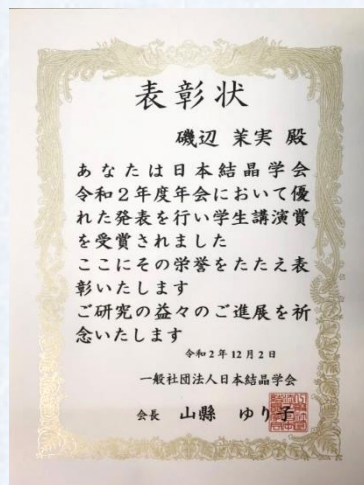 表彰状
磯辺 茉実 殿
あなたは日本結晶学会
令和2年度年会において優
れた発表を行い学生講演賞
を受賞されました
ここにその栄誉をたたえ表
彰いたします
ご研究の益々のご進展を祈
念いたします
令和2年12月2日
一般社団法人日本結晶学会
会長 山縣 ゆり子